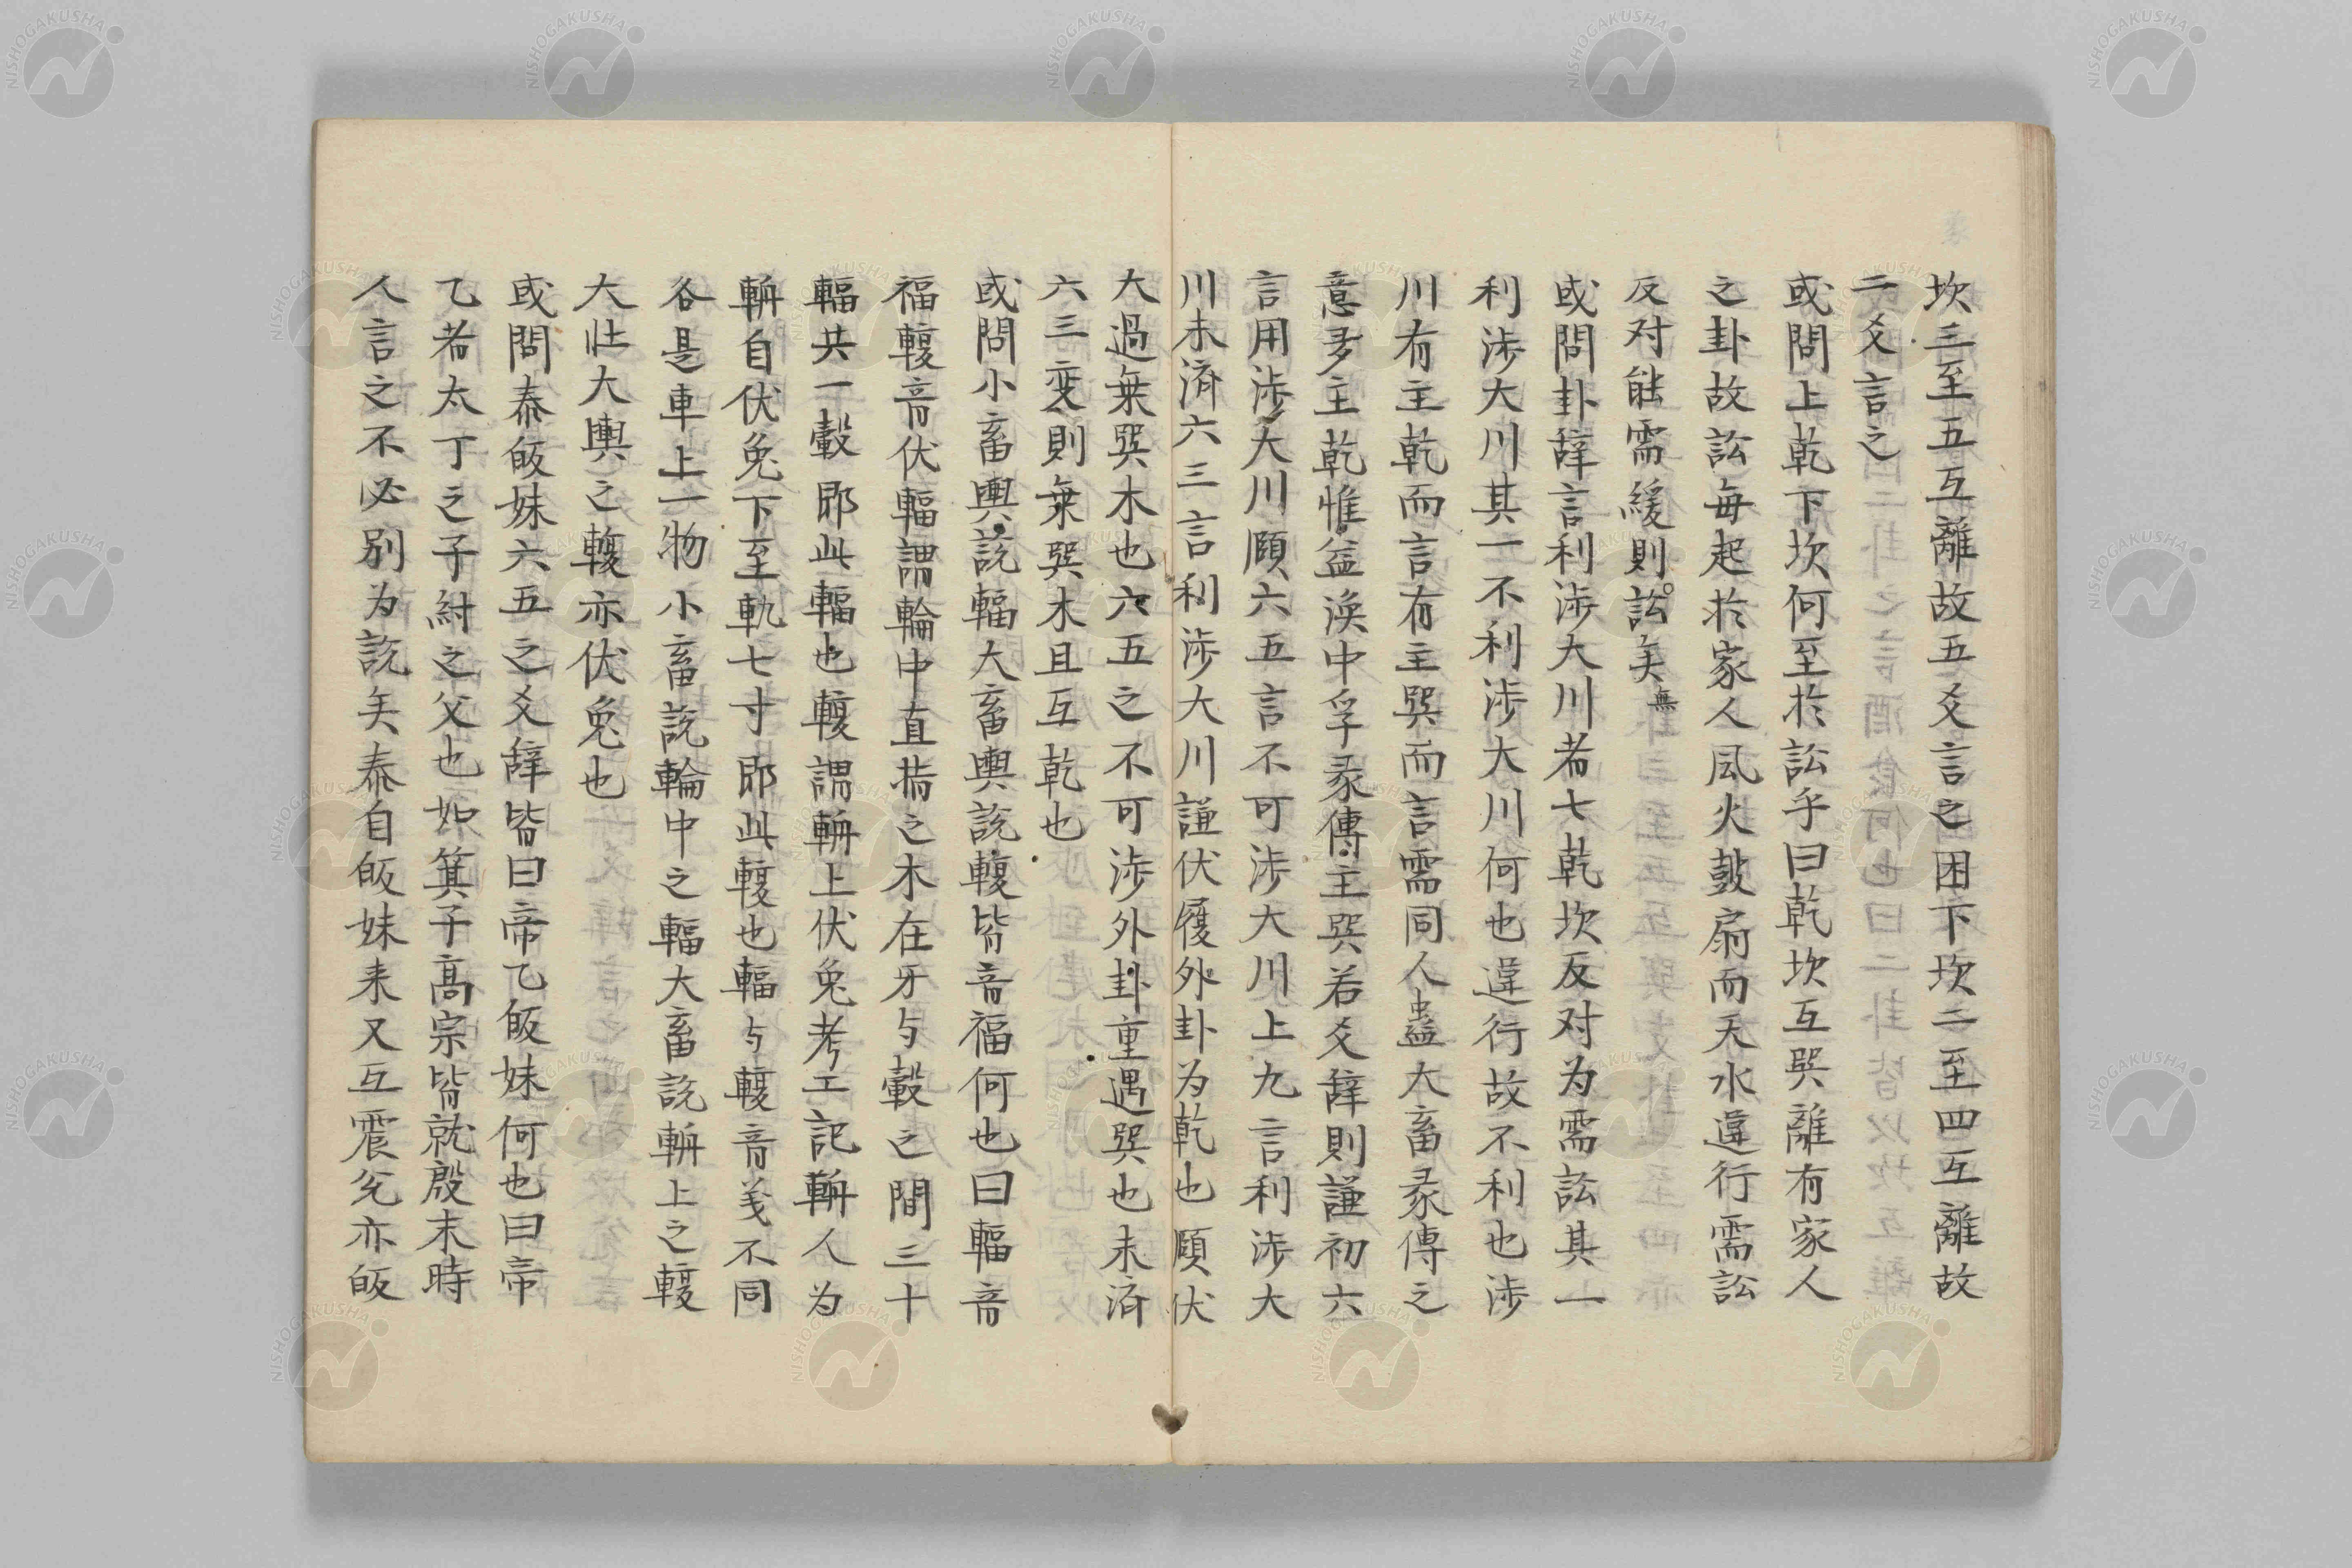 坎三至五互離故五爻言之困下坎二至四互離故
二爻言之
或問上乾下坎何至於訟乎曰乾坎互巽離有家人
之卦故訟每起於家人風火鼓扇而天水違行需訟
反对能需緩則訟矣無
或問卦辞言利涉大川者七乾坎反对为需訟其一
利涉大川其一不利涉大川何也違行故不利也涉
川有主乾而言有主巽而言需同人蠱大畜彖傳之
意多主乾惟益渙中孚彖傳主巽若爻辞則謙初六
言用涉大川頤六五言不可涉大川上九言利涉大
川未済六三言利涉大川謙伏履外卦为乾也頤伏
大過兼巽木也六五之不可涉外卦重遇巽也未済
六三变則兼巽木且互乾也
或問小畜輿説輻大畜輿説輹皆音福何也曰輻音
福輹音伏輻謂輪中直指之木在牙与轂之間三十
輻共一轂即此輻也輹謂輈上伏兔考工記輈人为
輈自伏兔下至軌七寸即此輹也輻与輹音义不同
各是車上一物小畜説輪中之輻大畜説輈上之輹
大壮大輿之輹亦伏兔也
或問泰皈妹六五之爻辞皆曰帝乙皈妹何也曰帝
乙者太丁之子紂之父也如箕子高宗皆就殷末時
人言之不必别为説矣泰自皈妹来又互震兊亦皈
NISHOGAKUSHA